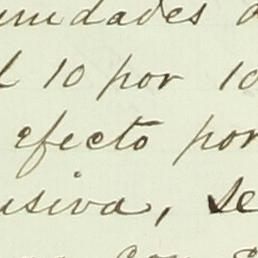 unidades
l 10 por 10
efecto por
usiva, se